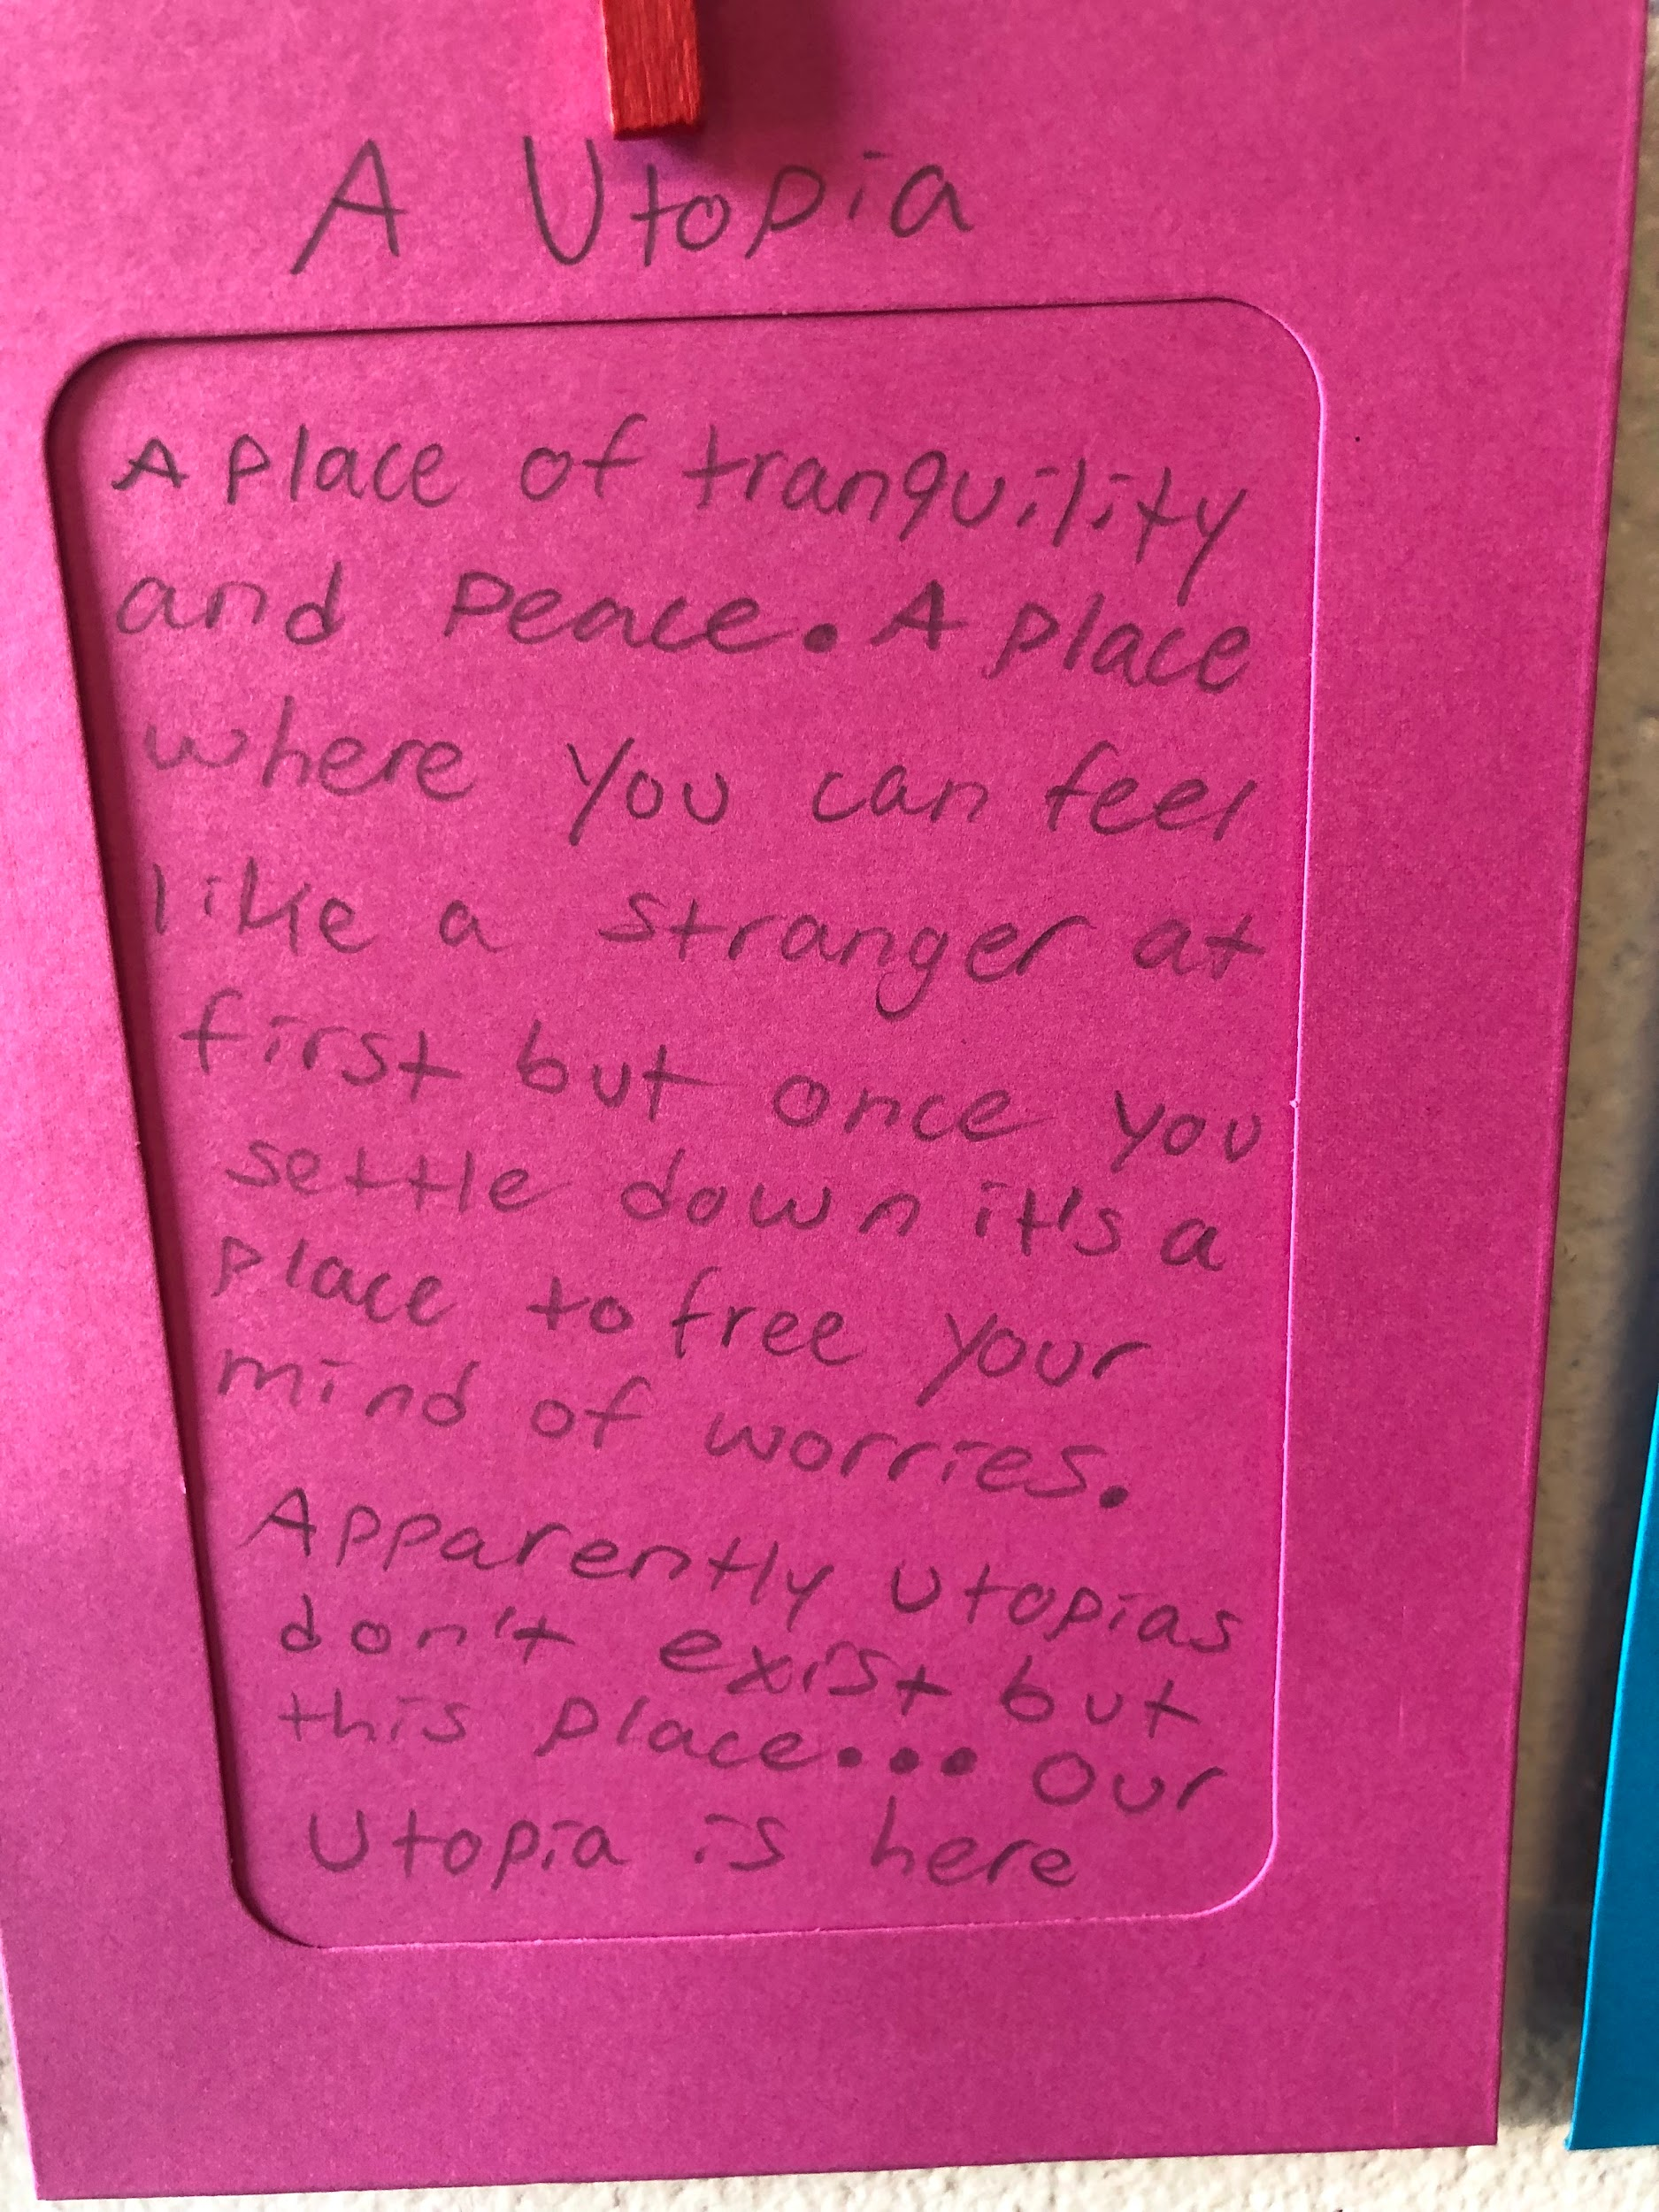 A Utopia
A place of tranquility
and peace. A place
where you can feel
like a stranger at
first but once you
settle down it's a
place to free your
mind of worries.
Apparently utopias
don't exist but
this place... Our
Utopia is here